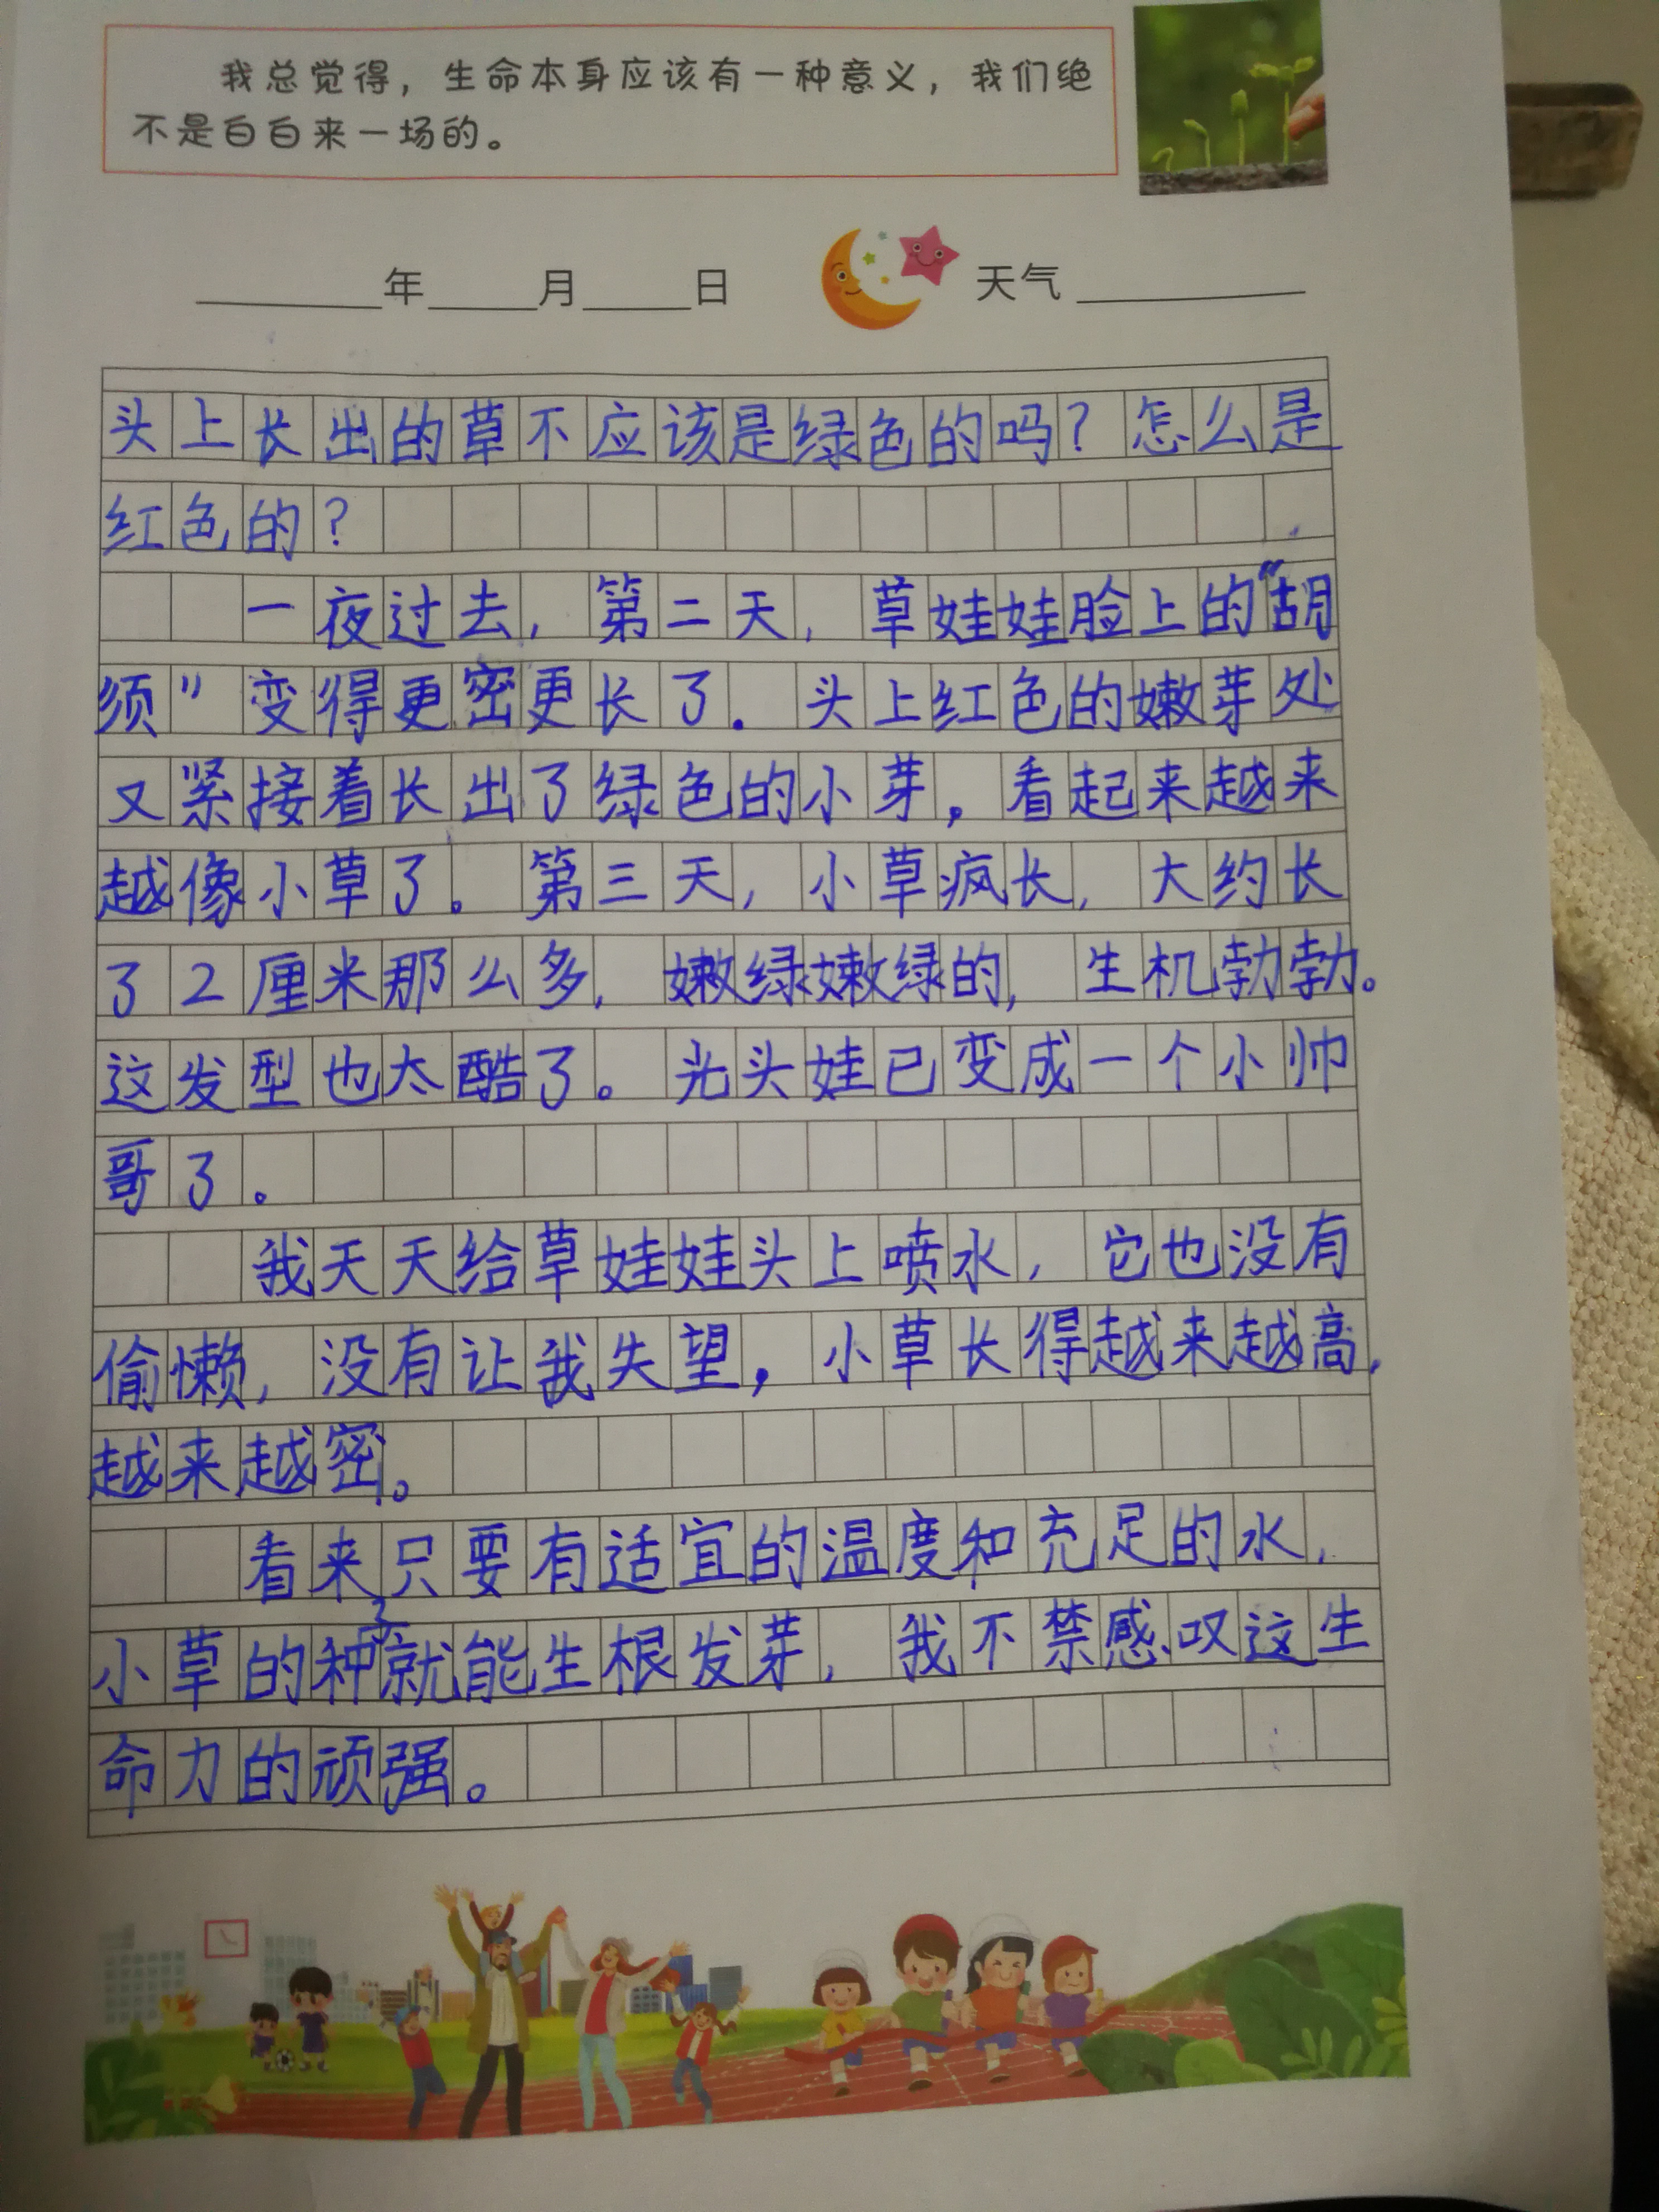 我总觉得，生命本身应该有一种意义，我们绝
不是白白来一场的。
年 月 日 天气
头上长出的草不应该是绿色的吗？怎么是
红色的？
一夜过去，第二天，草娃娃脸上的“胡
须”变得更密更长了。头上红色的嫩芽处
又紧接着长出了绿色的小芽，看起来越来
越像小草了。第三天，小草疯长，大约长
了2厘米那么多，嫩绿嫩绿的，生机勃勃。
这发型也太酷了。光头娃已变成一个小帅
哥了。
我天天给草娃娃头上喷水，它也没有
偷懒，没有让我失望，小草长得越来越高，
越来越密。
看来只要有适宜的温度和充足的水，
小草的种子就能生根发芽，我不禁感叹这生
命力的顽强。